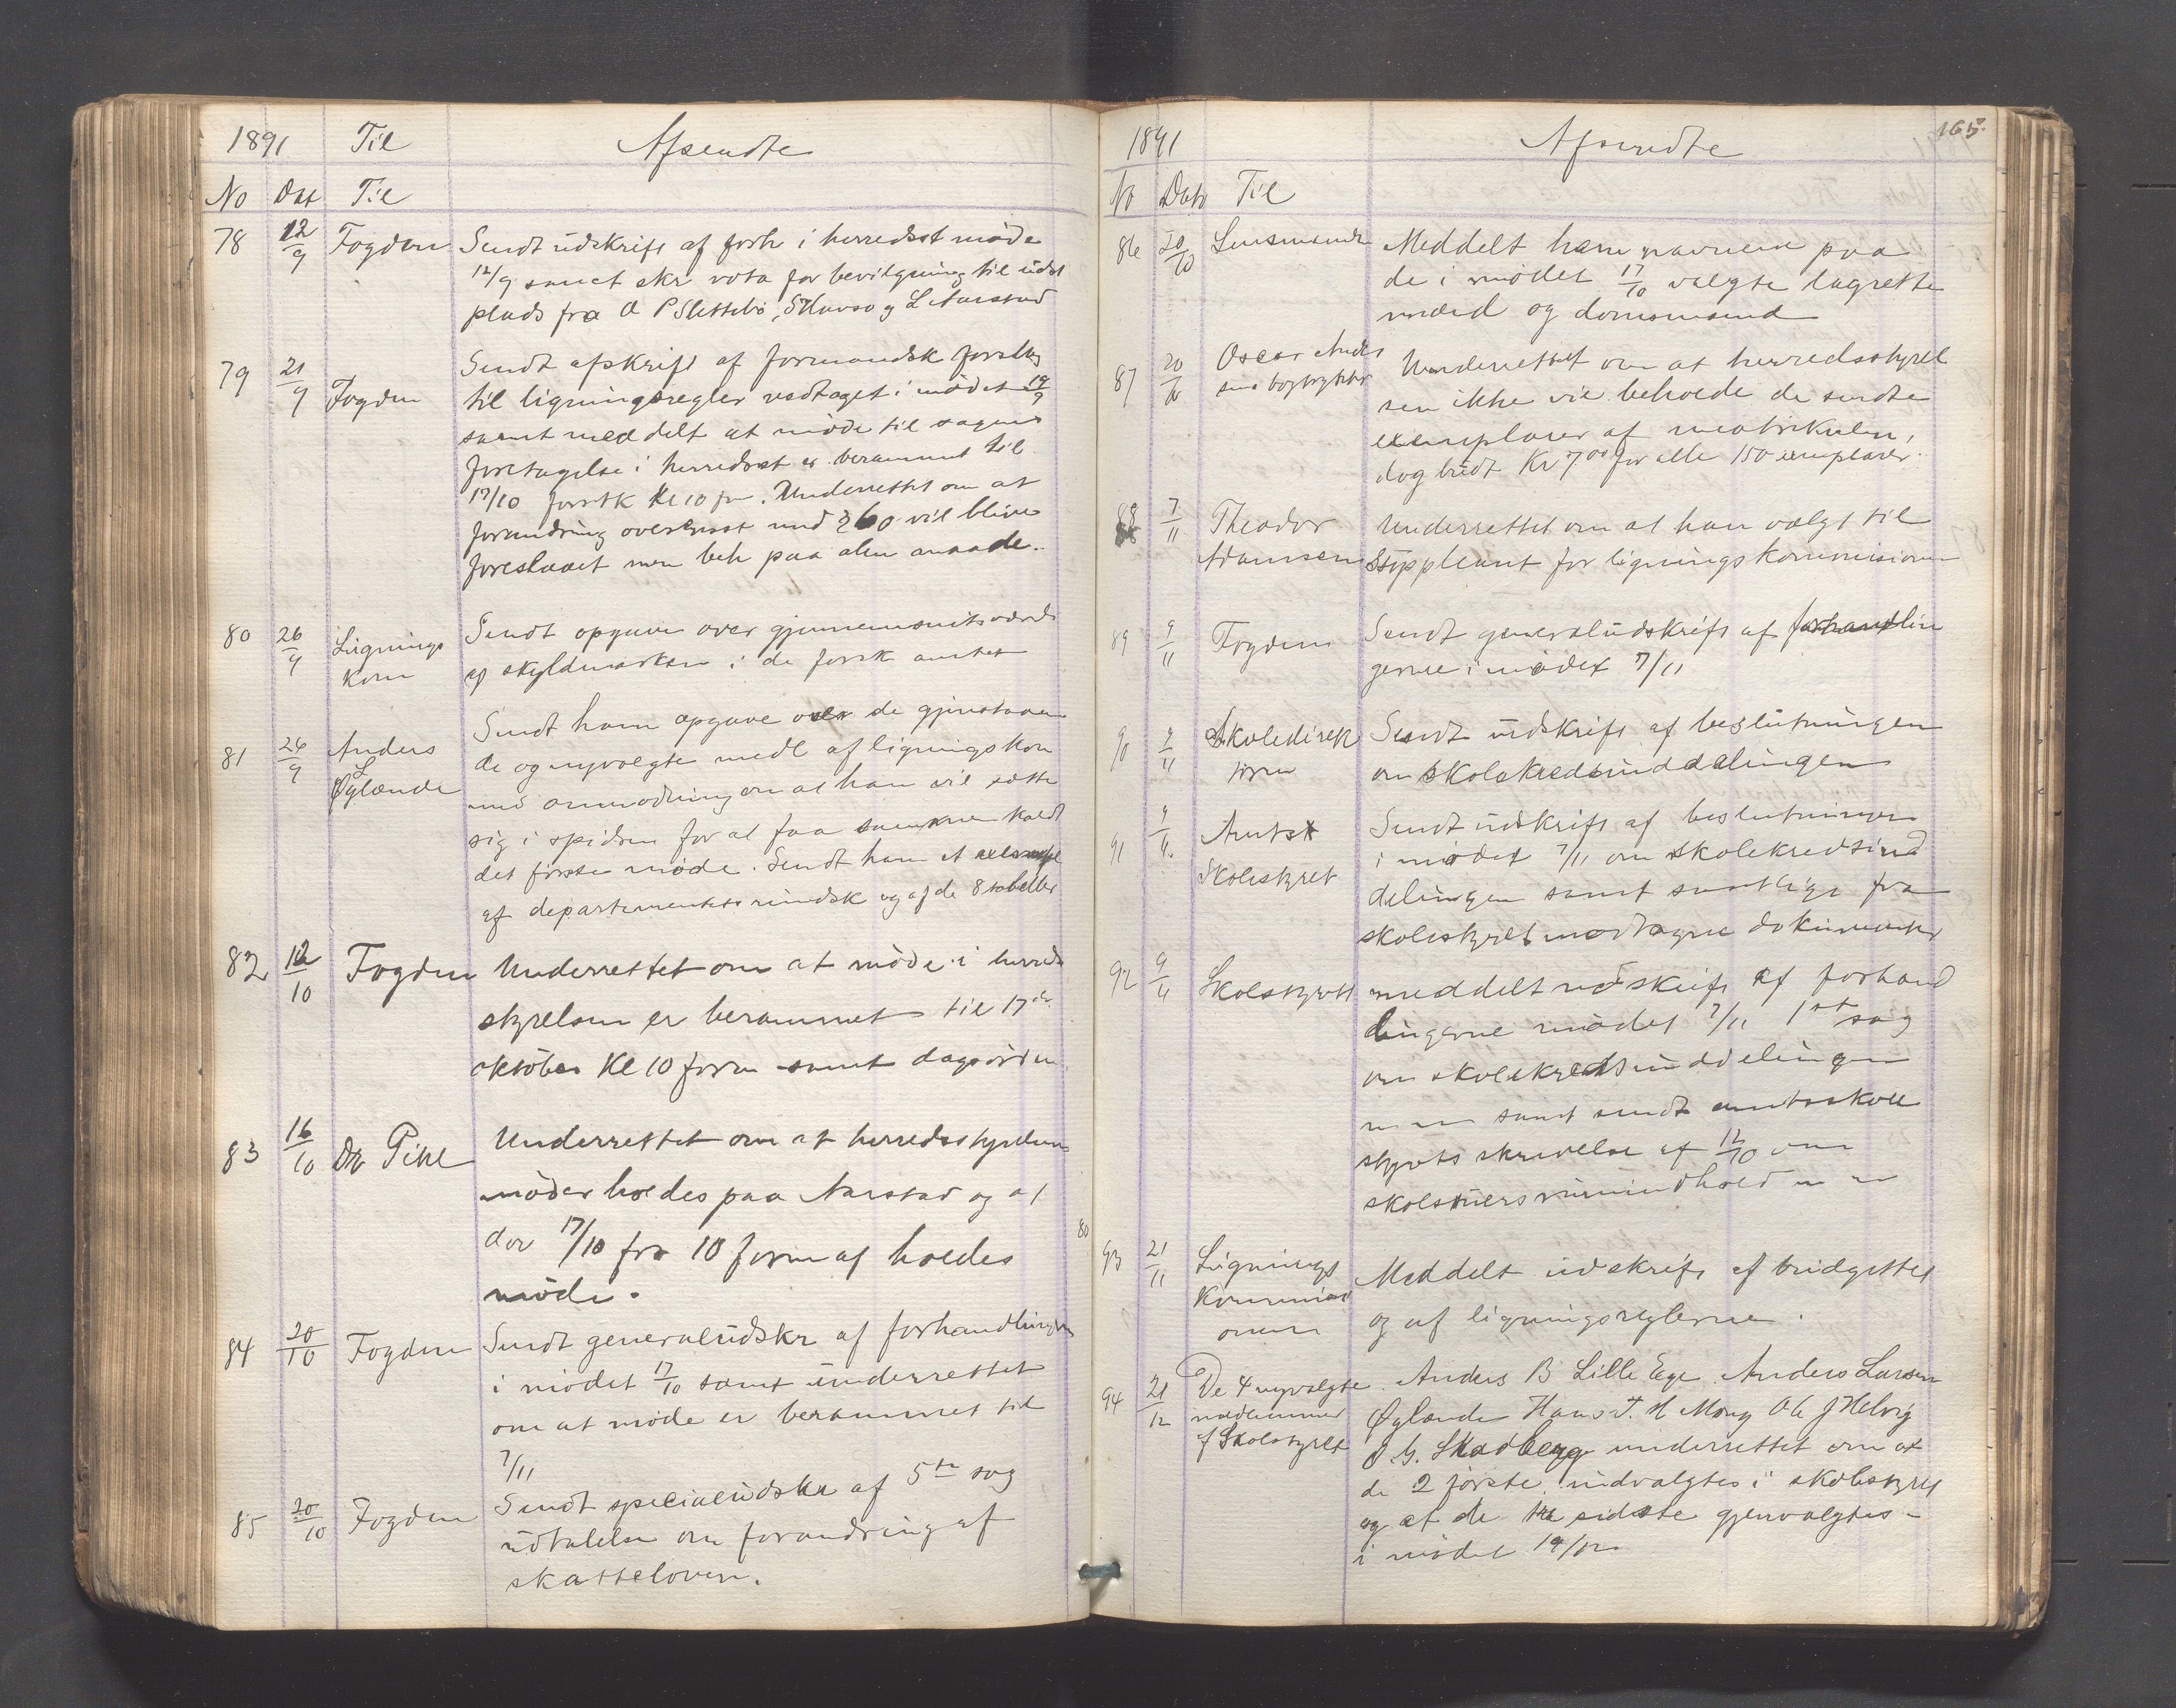 1891 Til Afsendte
No Dat Til
78 12/9 Fogden Sendt udskrift af forh i herredsst møde
12/9 samt skr vota for bevilgning til udst
plads fra O P Slettebø, S Havsø og L Aarstad
79 21/9 Fogden Sendt afskrift af formandsk forslag
til ligningsregler vedtaget i mødet 19/9
samt meddelt at møde til sagens
foretagelse i herredsst er berammet til
17/10 forstk Kl 10 fm. Underrettet om at
forandring overensst med § 60 vil blive
foreslaaet men beh paa alm maade.
80 26/9 Lignings
kom
Sendt opgave over gjennemsnitsværdi
af skyldmarken i de forsk amter
81 26/9 Anders
L
Øglænde
Sendt ham opgave over de gjenstaaen
de og nyvalgte medl af ligningskom
med anmodning om at han vil sætte
sig i spidsen for at faa sammenkaldt
det første møde. Sendt ham et exempl
af departementets rundsk og af de 8 tabeller
82 12/10 Fogden Underrettet om at møde i herreds
styrelsen er berammet til 17de
oktober Kl 10 form samt dagsorden
83 16/10 Dr Pihl Underrettet om at herredsstyrelsens
møder holdes paa Aarstad og at
der 17/10 fra 10 form af holdes
møde.
84 20/10 Fogden Sendt generaludskr af forhandlingerne
i mødet 17/10 samt underrettet
om at møde er berammet til
7/11
85 20/10 Fogden Sendt specialudskr af 5te sag
udtalelse om forandring af
skatteloven.
1891 Afsendte 165.
No Dato Til
86 20/10 Lensmanden Meddelt ham navnene paa
de i mødet 17/10 valgte lagrette
mænd og domsmænd
87 20/10 Oscar Ander
sens bogtrykkeri
Underrettet om at herredsstyrel
sen ikke vil beholde de sendte
exemplarer af matrikulen,
dog budt Kr 7.00 for alle 150 exemplarer.
88 7/11 Theodor
Adamsen
Underrettet om at han valgt til
Suppleant for ligningskommissionen
89 9/11 Fogden Sendt generaludskrift af forhandlin
gerne i mødet 7/11
90 9/11 Skoledirek
tøren
Sendt udskrift af beslutningen
om skolekredsinddelingen
91 9/11 Amts
Skolestyret
Sendt udskrift af beslutningen
i mødet 7/11 om skolekredsind
delingen samt samtlige fra
skolestyret modtagne dokumenter
92 9/11 Skolestyret meddelt udskrift af forhand
lingerne mødet 7/11 1ste sag
om skolekredsinddelingen
samt sendt amtsskole
styrets skrivelse af 12/10 om
80
93 21/11 Lignings
Kommissi
onen
Meddelt udskrift af budgettet
og af ligningsreglerne.
94 21/12 De 4 nyvalgte
medlemmer
af Skolestyret
Anders B Lille Ege Anders Larsen
Øglænde Hans T. H Mong Ole J Helvig
O. G. Skadberg underrettet om at
de 2 første indvalgtes i skolestyret
og at de tre sidste gjenvalgtes
i mødet 19/12